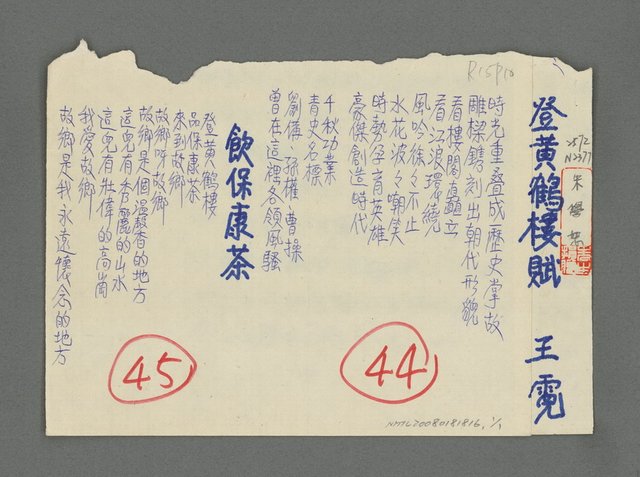 登黃鶴樓賦　王霓
時光重疊成歷史掌故
雕樑鐫刻出朝代形貌
看樓閣矗立
看江浪環繞
風吟徐々不止
水花波々嘲笑
時勢孕育英雄
豪傑創造時代
44
千秋功業
青史名標
劉備、孫權、曹操
曾在這裡各領風騷
飲保康茶
登黃鶴樓
品保康茶
來到故鄉
故鄉呀故鄉
故鄉是個溫馨的地方
這兒有秀麗的山水
這兒有壯偉的高崗
我愛故鄉
故鄉是我永遠懷念的地方
45
R15P10
NMTL20080181816, 1/1